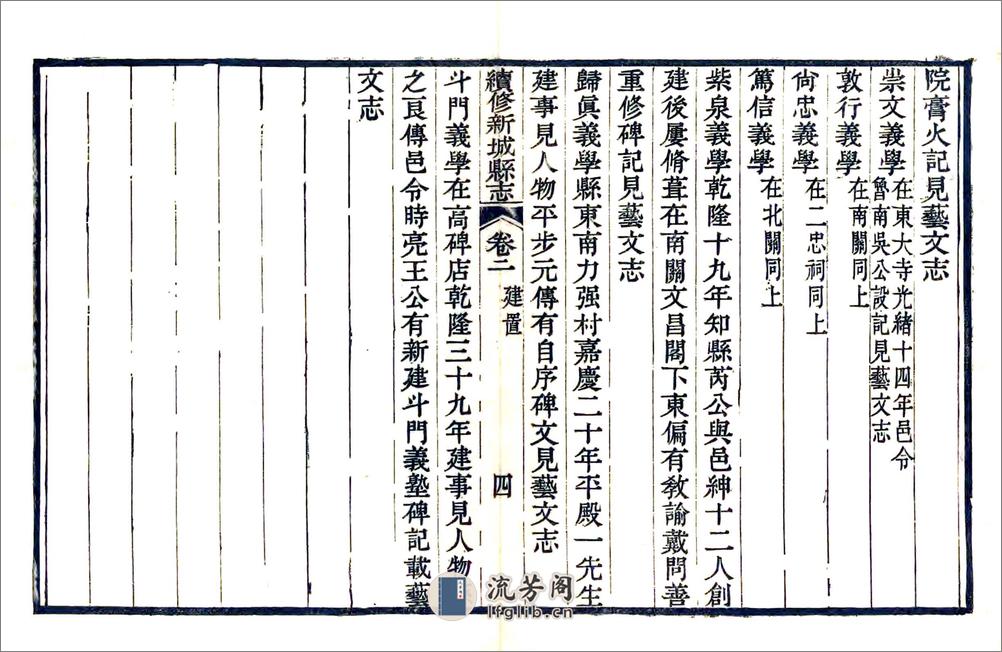 院膏火記見藝文志
崇文義學在東大寺光緒十四年邑令
魯南吳公設記見藝文志
敦行義學在南關同上
尙忠義學在二忠祠同上
篤信義學在北關同上
紫泉義學乾隆十九年知縣芮公與邑紳十二人創
建後屢脩葺在南關文昌閣下東偏有敎諭戴問善
重修碑記見藝文志
歸眞義學縣東南力强村嘉慶二十年平殿一先生
建事見人物平步元傳有自序碑文見藝文志
續修新城縣志 卷二 建置 四
斗門義學在高碑店乾隆三十九年建事見人物
之良傳邑令時亮王公有新建斗門義塾碑記載藝
文志
流芳阁
lfglib.cn